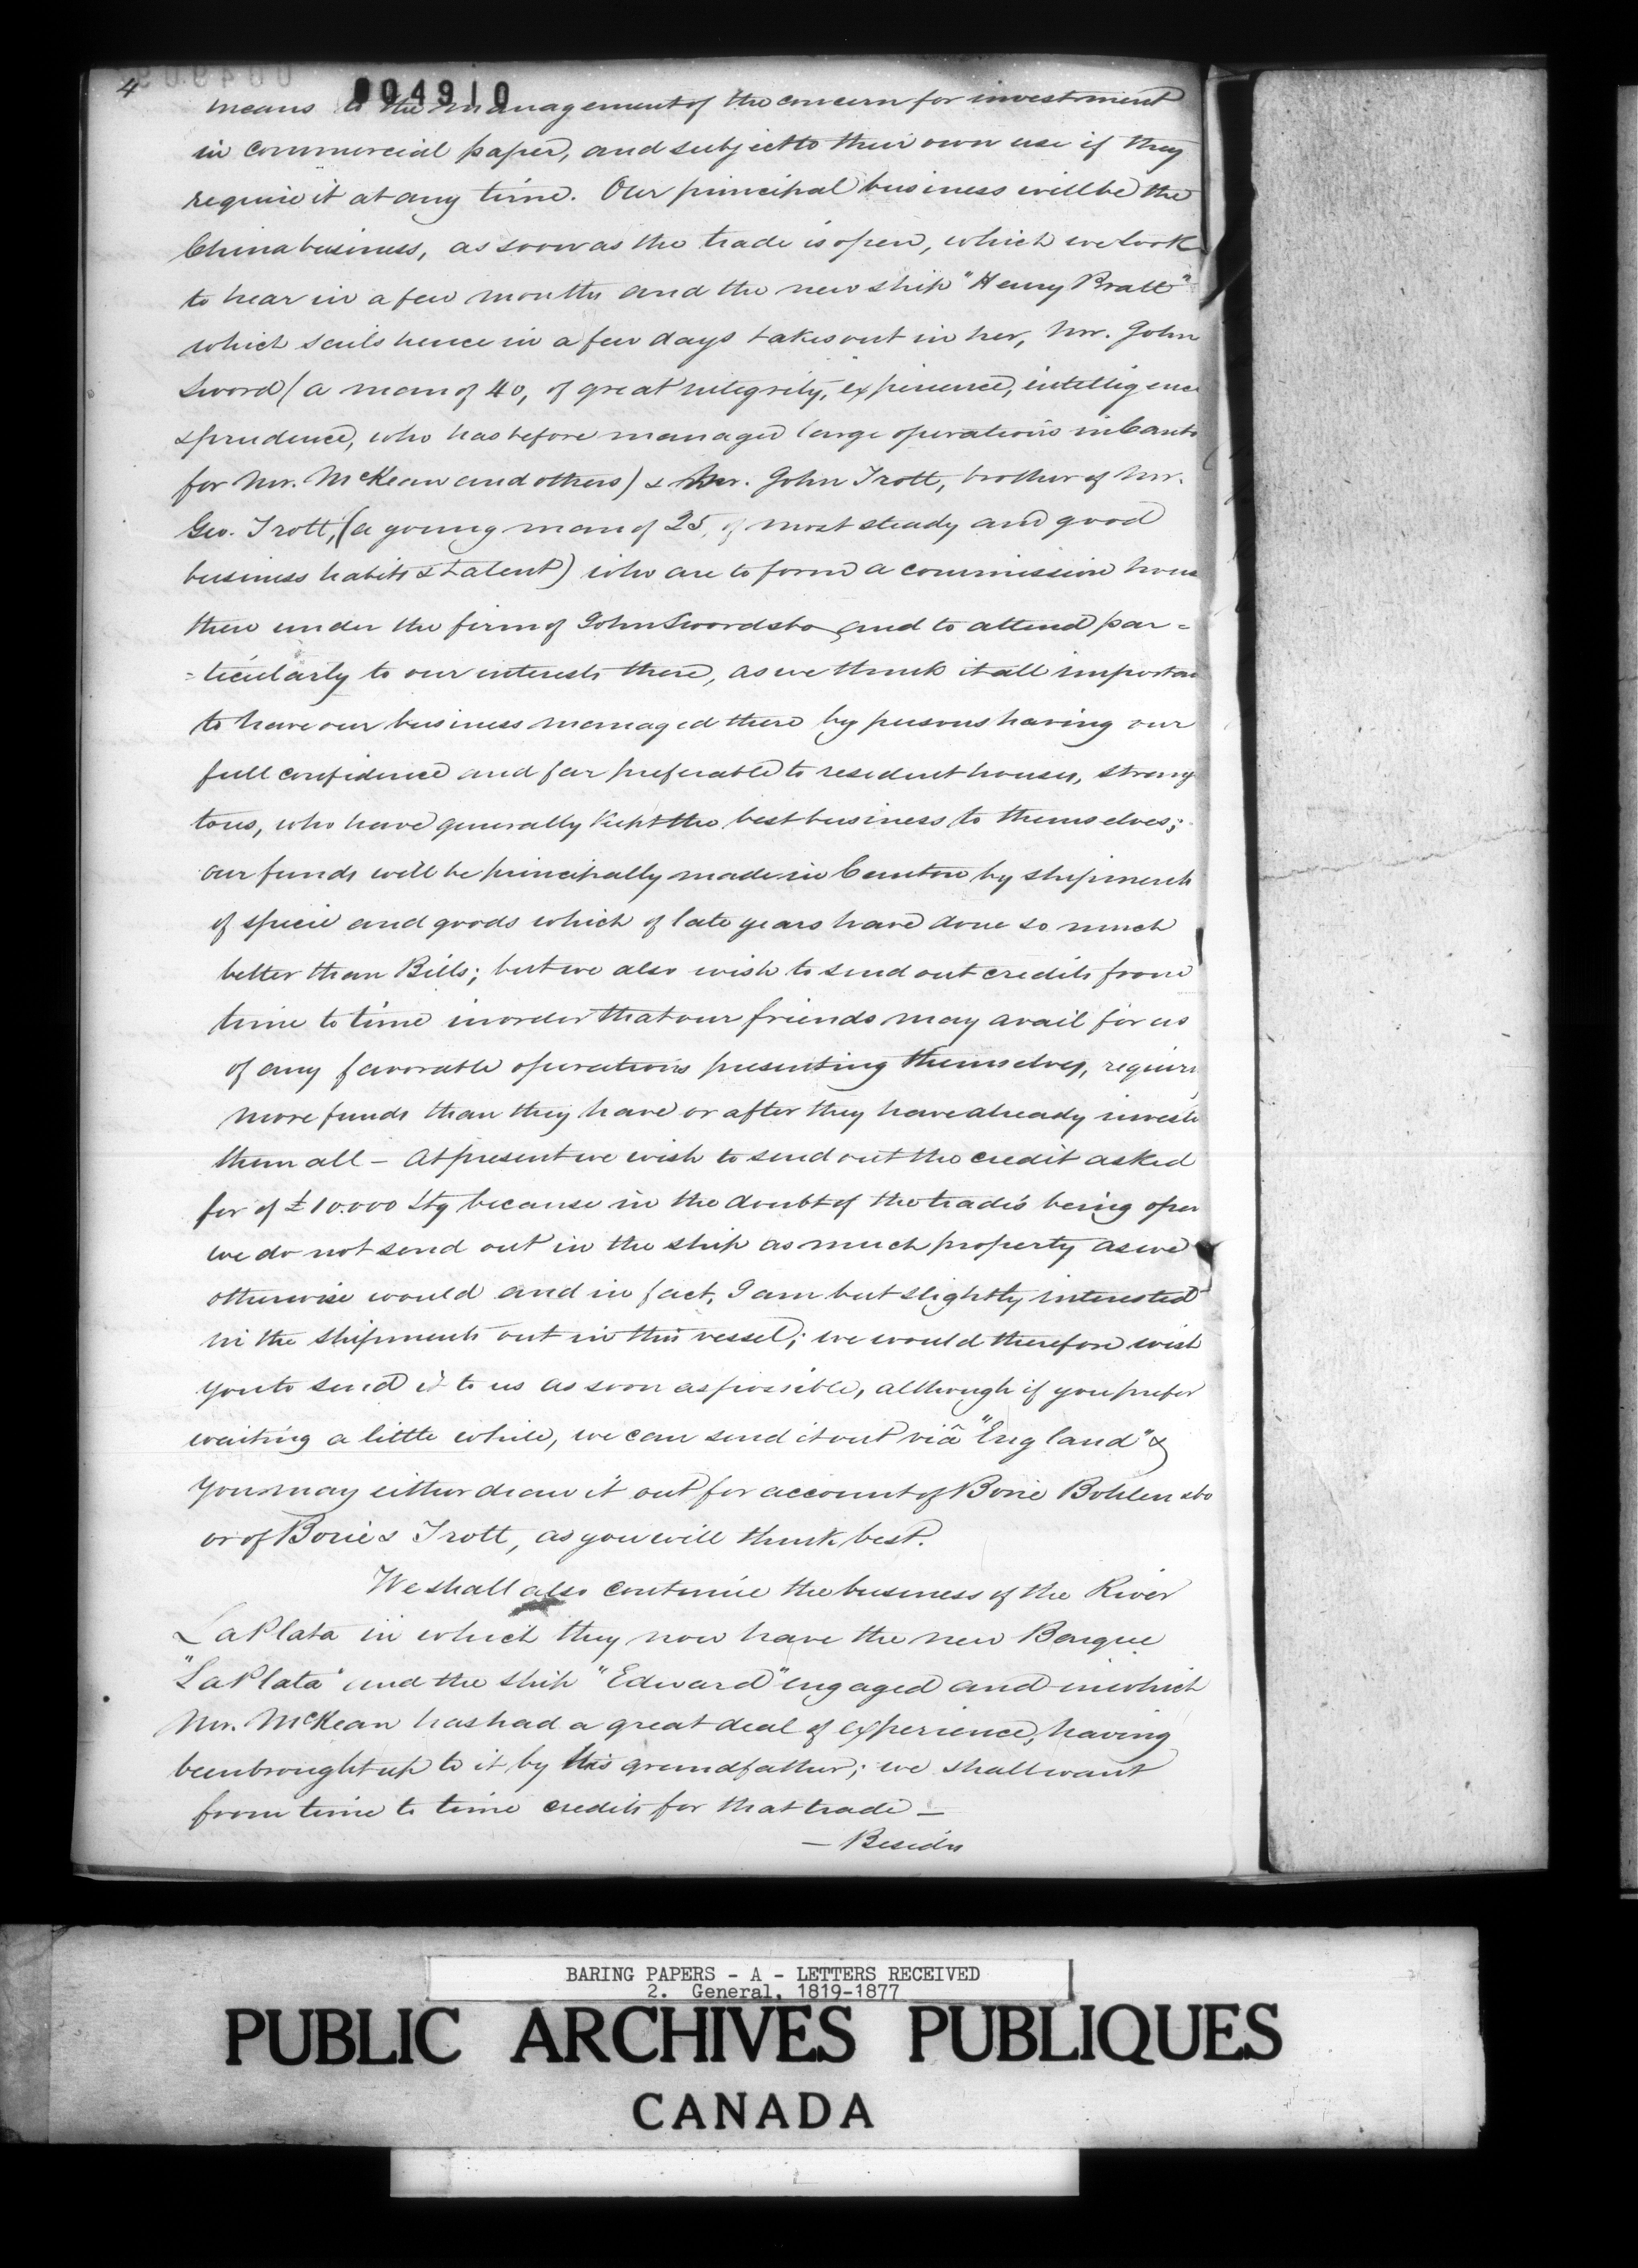 4
004910
means to the management of the concern for investment
in commercial paper, and subject to their own use if they
require it at any time. Our principal business will be the
China business, as soon as the trade is open, which we look
to hear in a few months and the new ship "Henry Pratt"
which sails hence in a few days takes out in her, Mr. John
Sword (a man of 40, of great integrity, experience, intelligence
& prudence, who has before managed large operations in Canto
for Mr. McKean and others) & Mr. John Trott, brother of Mr.
Geo. Trott, (a young man of 25, of most steady and good
business habits & talent) who are to form a commission hous
there under the firm of John Sword & Co and to attend par=
=ticularly to our interests there, as we think it all importan
to have our business managed there by persons having our
full confidence and far preferable to resident houses, strang
to us, who have generally kept the best business to themselves;
our funds will be principally made in Canton by shipments
of specie and goods which of late years have done so much
better than Bills; but we also wish to send out credits from
time to time in order that our friends may avail for us
of any favorable operations presenting themselves, requiri
more funds than they have or after they have already investe
them all - At present we wish to send out the credit asked
for of £10.000 Stg because in the doubt of the trade's being open
we do not send out in the ship as much property as we
otherwise would and in fact, I am but slightly interested
in the shipments out in this vessel; we would therefore wish
you to send it to us as soon as possible, although if you prefer
waiting a little while, we can send it out viâ "England" &
you may either draw it out for account of Borie Bohlen & Co
or of Borie & Trott, as you will think best.
We shall also continue the business of the River
La Plata in which they now have the new Barque
"La Plata" and the ship "Edward" engaged and in which
Mr. McKean has had a great deal of experience, having
been brought up to it by his grandfather; we shall want
from time to time credits for that trade -
- Besides
BARING PAPERS - A - LETTERS RECEIVED
2. General, 1819-1877
PUBLIC ARCHIVES PUBLIQUES
CANADA